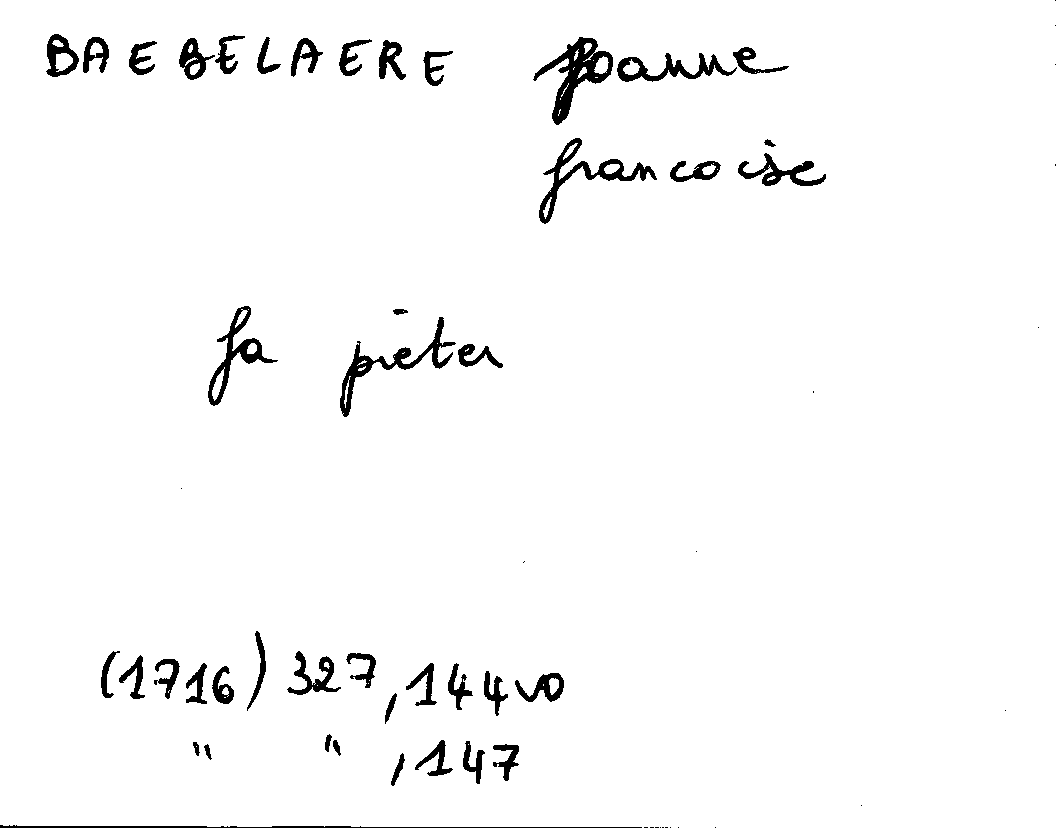 BAEBELAERE Joanne
francoise
fa pieter
(1716) 327, 144vo
" " , 147